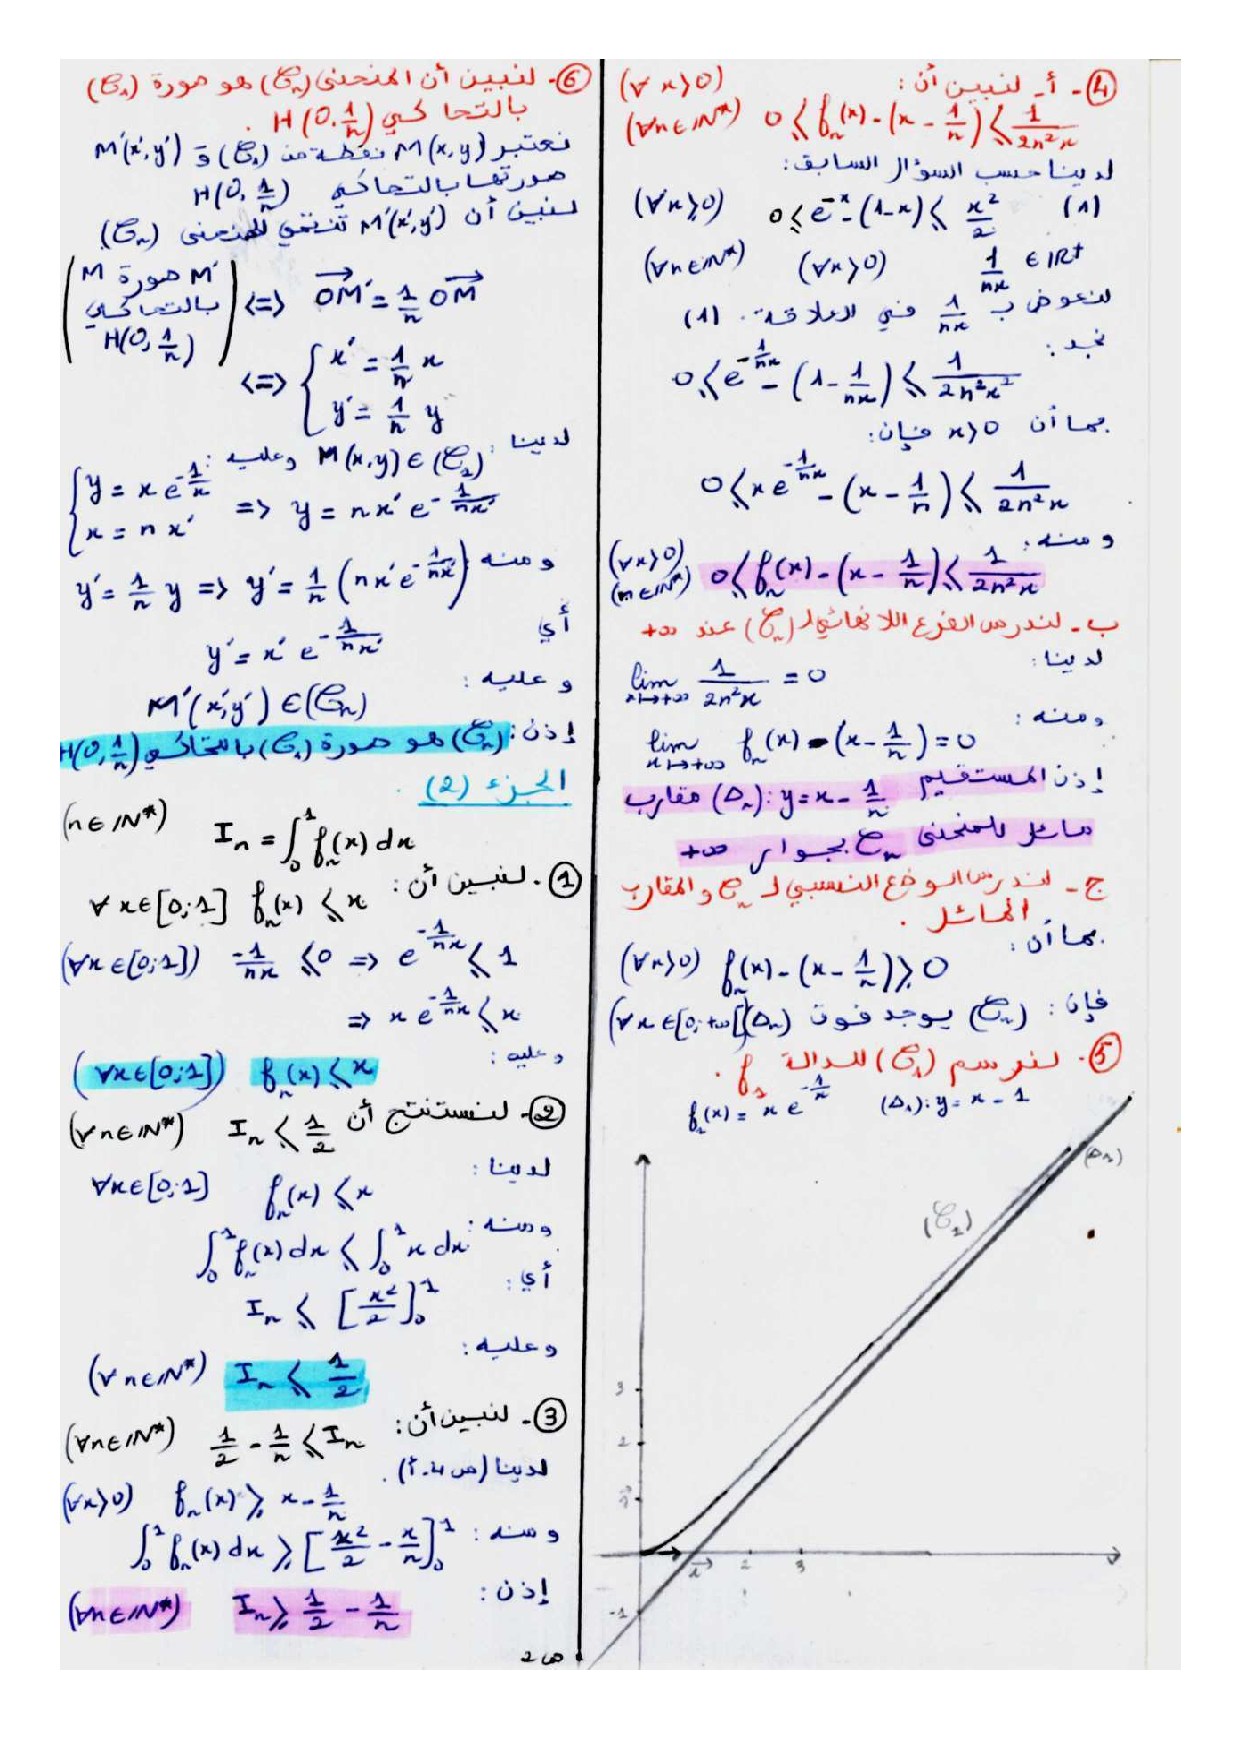 4- أ- لنبين أن : (∀x>0)
(∀n∈ℕ*) 0 ≤ fₙ(x) - (x - 1/n) ≤ 1/(2n²x)
لدينا حسب السؤال السابق :
(1) 0 ≤ e^(-x) - (1-x) ≤ x²/2 (∀x≥0)
1/(nx) ∈ IR⁺ (∀x>0) (∀n∈ℕ*)
لنعوض ب 1/(nx) في العلاقة (1).
نجد :
0 ≤ e^(-1/(nx)) - (1 - 1/(nx)) ≤ 1/(2n²x²)
بما أن x>0 فإن :
0 ≤ x e^(-1/(nx)) - (x - 1/n) ≤ 1/(2n²x)
ومنه : (∀x>0)
(n∈ℕ*) 0 ≤ fₙ(x) - (x - 1/n) ≤ 1/(2n²x)
ب- لندرس الفرع اللانهائي لـ (𝒞ₙ) عند +∞
لدينا :
lim x→+∞ 1/(2n²x) = 0
ومنه :
lim x→+∞ fₙ(x) - (x - 1/n) = 0
إذن المستقيم (Δₙ): y = x - 1/n مقارب
مائل للمنحنى 𝒞ₙ بجوار +∞
ج- لندرس الوضع النسبي لـ 𝒞ₙ و المقارب
المائل .
بما أن :
(∀x>0) fₙ(x) - (x - 1/n) ≥ 0
فإن : (𝒞ₙ) يوجد فوق (Δₙ) (∀x∈[0;+∞[)
5- لنرسم (𝒞₁) للدالة f₁ .
f₁(x) = x e^(-1/x) (Δ₁): y = x - 1
(Δ₁)
(𝒞₁)
3
2
j
i 2 3
-1
6- لنبين أن المنحنى (𝒞ₙ) هو صورة (𝒞₁)
بالتحاكي H(0.1/n) .
نعتبر M(x,y) نقطة من (𝒞₁) و M'(x',y')
صورتها بالتحاكي H(0,1/n)
لنبين أن M'(x',y') تنتمي للمنحنى (𝒞ₙ)
(M' صورة M بالتحاكي H(0,1/n)) <=> OM' = 1/n OM
<=> { x' = 1/n x
y' = 1/n y
لدينا : M(x,y) ∈ (𝒞₁) وعليه :
{ y = x e^(-1/x)
x = n x' => y = nx' e^(-1/(nx'))
ومنه y' = 1/n y => y' = 1/n (nx' e^(-1/(nx')))
أي y' = x' e^(-1/(nx'))
وعليه :
M'(x',y') ∈ (𝒞ₙ)
إذن : (𝒞ₙ) هو صورة (𝒞₁) بالتحاكي H(0,1/n)
الجزء (2) .
(n∈ℕ*) Iₙ = ∫₀¹ fₙ(x) dx
1- لنبين أن : ∀x∈[0;1] fₙ(x) ≤ x
(∀x∈[0;1]) -1/(nx) ≤ 0 => e^(-1/(nx)) ≤ 1
=> x e^(-1/(nx)) ≤ x
وعليه :
(∀x∈[0;1]) fₙ(x) ≤ x
2- لنستنتج أن Iₙ ≤ 1/2 (∀n∈ℕ*)
لدينا :
∀x∈[0;1] fₙ(x) ≤ x
ومنه :
∫₀¹ fₙ(x) dx ≤ ∫₀¹ x dx
أي :
Iₙ ≤ [x²/2]₀¹
وعليه :
(∀n∈ℕ*) Iₙ ≤ 1/2
3- لنبين أن : 1/2 - 1/n ≤ Iₙ (∀n∈ℕ*)
لدينا (س 4.أ) .
(∀x>0) fₙ(x) ≥ x - 1/n
ومنه : ∫₀¹ fₙ(x) dx ≥ [x²/2 - x/n]₀¹
إذن :
(∀n∈ℕ*) Iₙ ≥ 1/2 - 1/n
ص 2